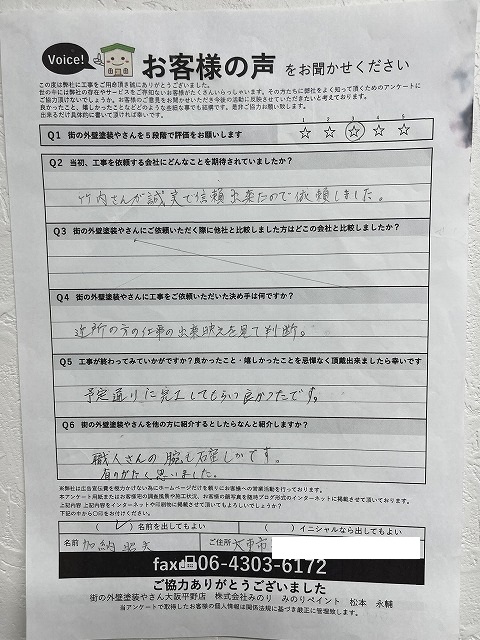 Voice!
お客様の声 をお聞かせください
この度は弊社に工事をご用命頂き誠にありがとうございました。
世の中には弊社の存在やサービスをご存知ないお客様がたくさんいらっしゃいます。その方たちに弊社をよく知って頂くためのアンケートに
ご協力頂けないでしょうか。お客様のご意見をお聞かせいただき今後の活動に反映させていただきたいと考えております。
良かったこと、嬉しかったことなどどのような些細な事でも結構です。是非ご協力お願い致します。
出来るだけ具体的に書いて頂ければ幸いです。
Q1 街の外壁塗装やさんを5段階で評価をお願いします
1 2 3 4 5
☆ ☆ ☆ ☆ ☆
Q2 当初、工事を依頼する会社にどんなことを期待されていましたか?
竹内さんが誠実で信頼出来たので依頼しました。
Q3 街の外壁塗装やさんにご依頼いただく際に他社と比較しました方はどこの会社と比較しましたか?
Q4 街の外壁塗装やさんに工事をご依頼いただいた決め手は何ですか?
近所の方の仕事の出来映えを見て判断。
Q5 工事が終わってみていかがですか?良かったこと・嬉しかったことを忌憚なく頂戴出来ましたら幸いです
予定通りに完工してもらって良かったです。
Q6 街の外壁塗装やさんを他の方に紹介するとしたらなんと紹介しますか?
職人さんの腕も確かです。
有りがたく思いました。
※弊社は広告宣伝費を極力かけない為にホームページだけを頼りにお客様への営業活動を行っております。
本アンケート用紙またはお客様宅の調査風景や施工状況、お客様の顔写真を随時ブログ形式のインターネットに掲載させて頂いております。
上記内容をインターネットや印刷物に掲載させて頂いてもよろしいでしょうか?
下記の中から〇印をお付けください。
( ✓ ) 名前を出してもよい ( ) イニシャルなら出してもよい
名前 加納 ご住所 大東市
fax 06-4303-6172
ご協力ありがとうございました
街の外壁塗装やさん大阪平野店 株式会社みのり みのりペイント 松本 永輔
当アンケートで取得したお客様の個人情報は関係法規に基づき厳正に管理致します。